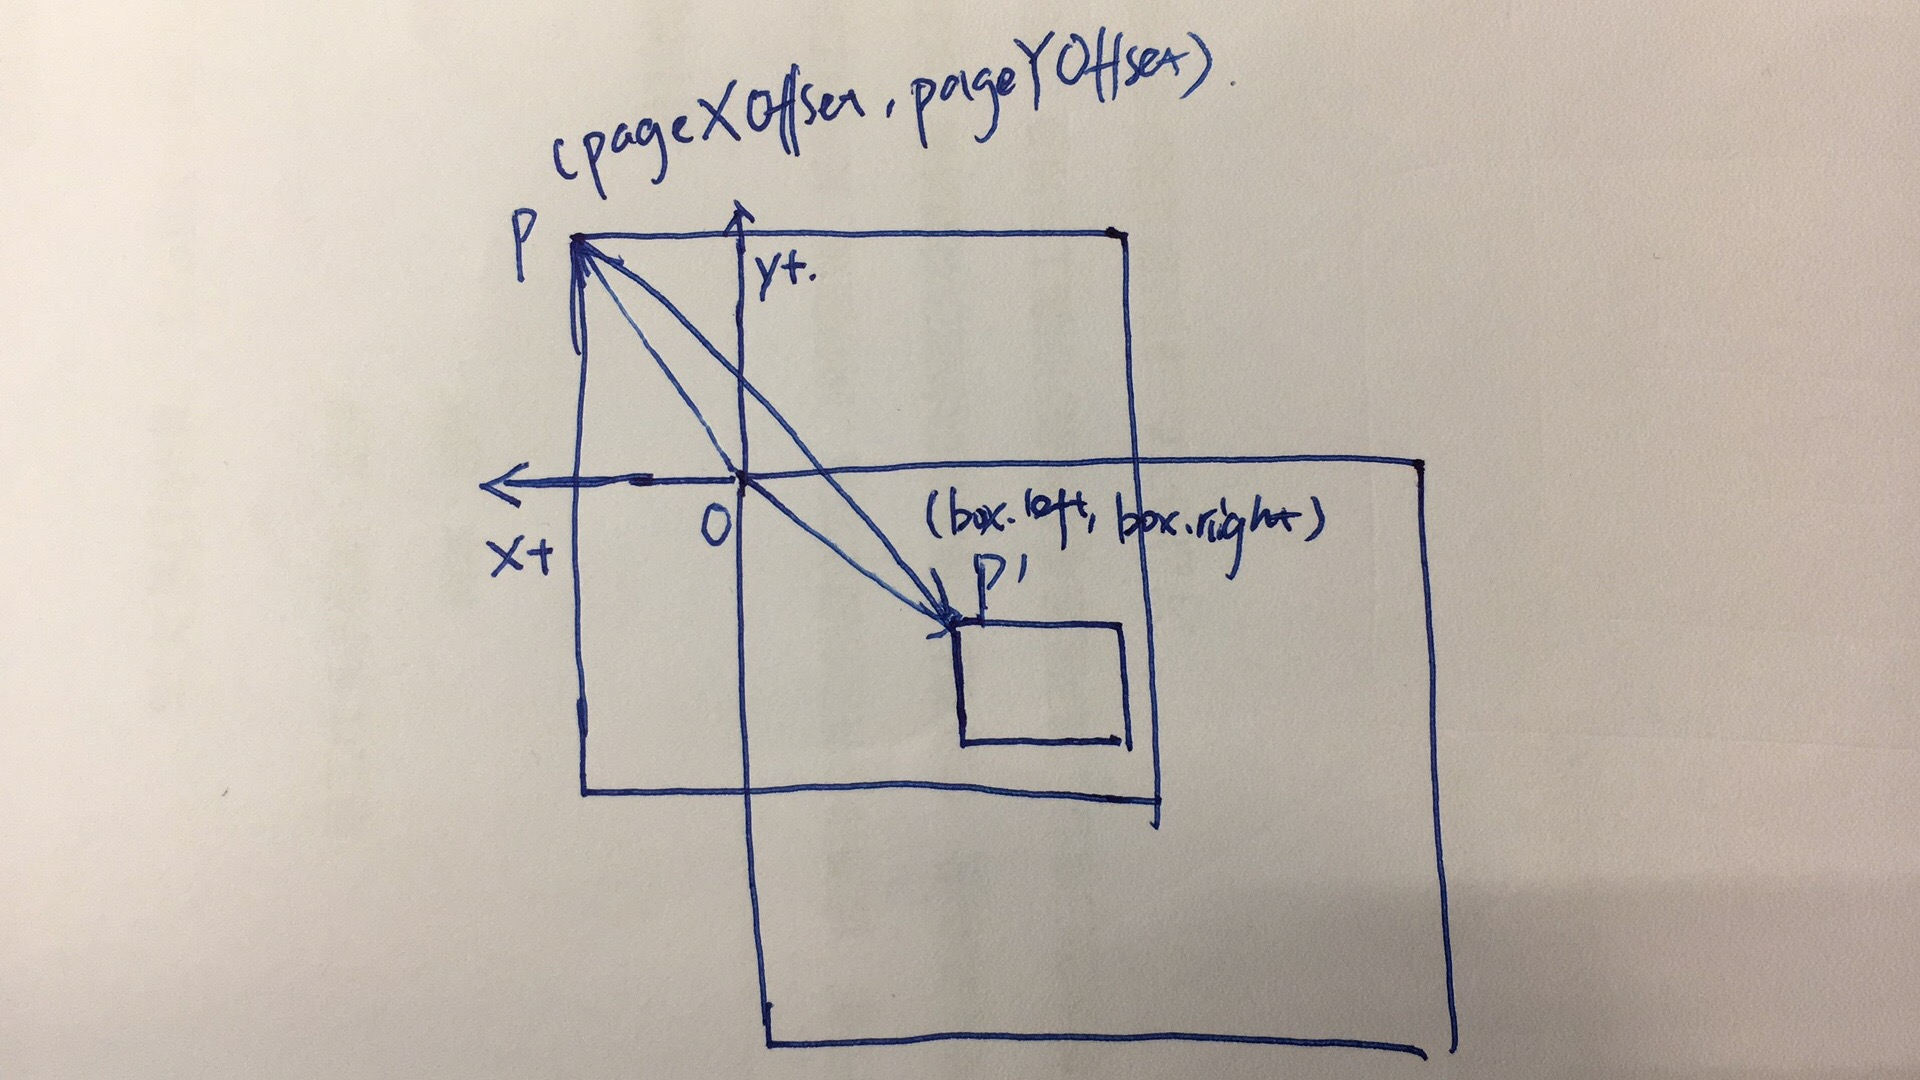 (pageXOffset, pageYOffset).
P
y+.
(box.left, box.right)
O
x+
P'